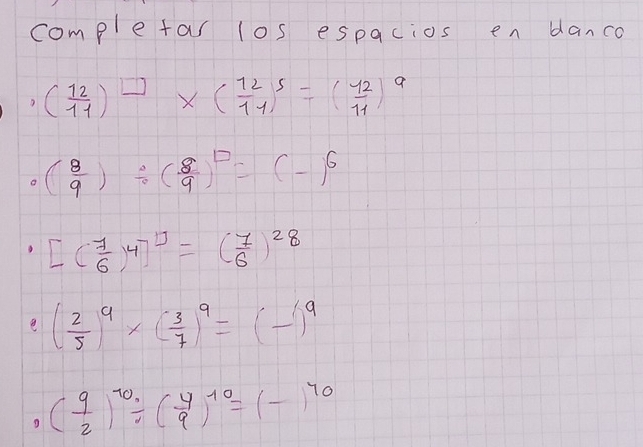 completar los espacios en blanco
• (12/11)^□ × (12/11)^5 = (12/11)^9
• (8/9) ÷ (8/9)^□ = (—)^6
• [(7/6)^4]^□ = (7/6)^28
• (2/5)^9 × (3/7)^9 = (—)^9
• (9/2)^10 ÷ (4/9)^10 = (—)^10